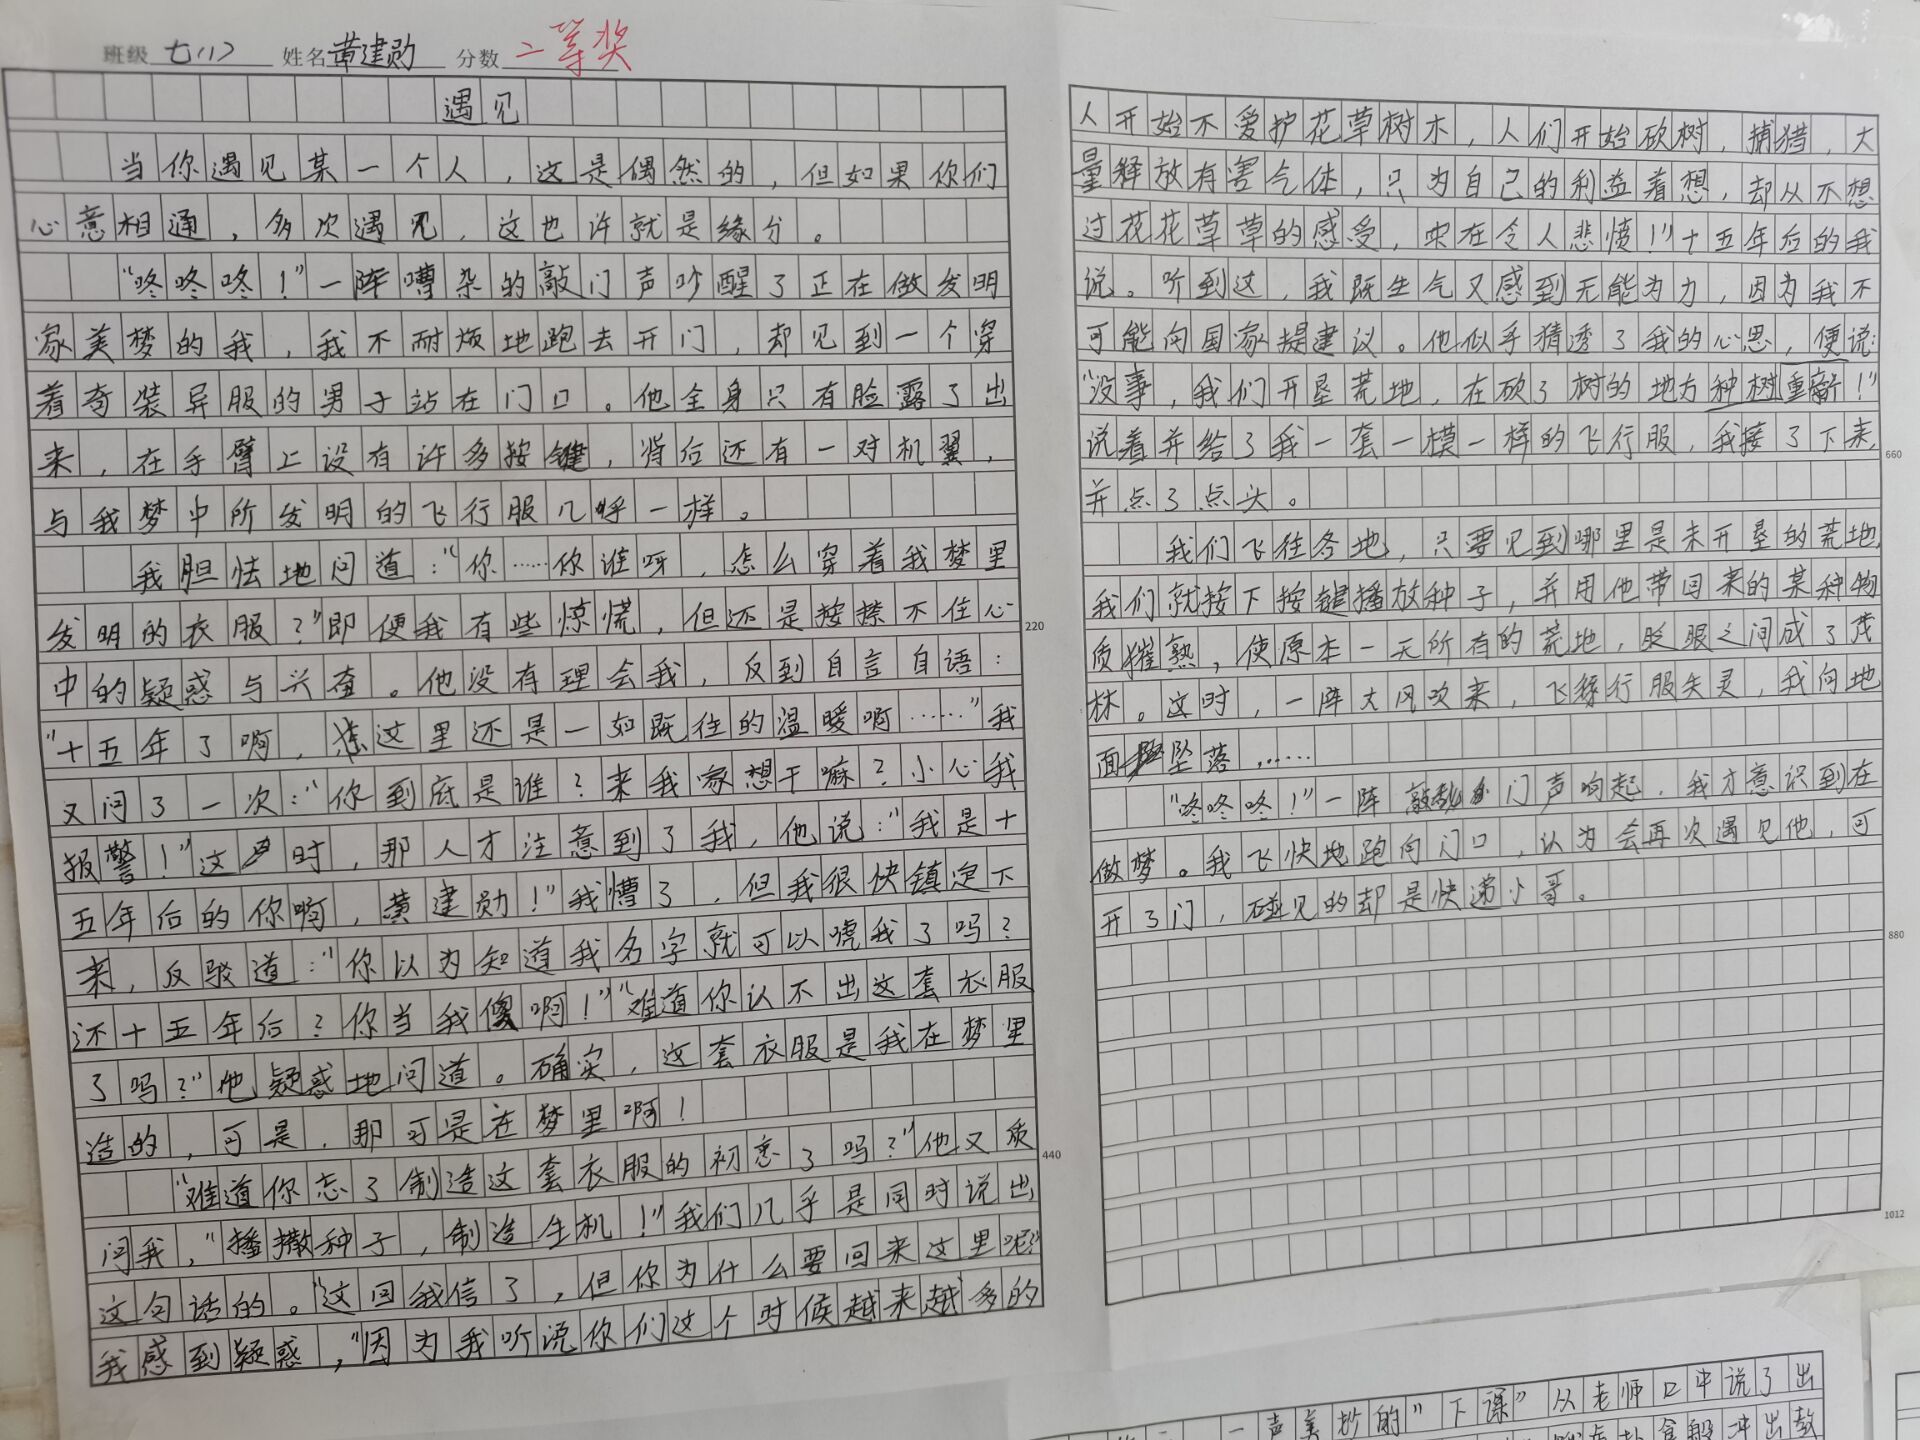 班级 七(1) 姓名 黄建勋 分数 二等奖
遇见
当你遇见某一个人，这是偶然的，但如果你们
心意相通，多次遇见，这也许就是缘分。
“咚咚咚！”一阵嘈杂的敲门声吵醒了正在做发明
家美梦的我，我不耐烦地跑去开门，却见到一个穿
着奇装异服的男子站在门口。他全身只有脸露了出
来，在手臂上设有许多按键，背后还有一对机翼，
与我梦中所发明的飞行服几乎一样。
我胆怯地问道：“你……你谁呀，怎么穿着我梦里
发明的衣服？”即便我有些惊慌，但还是按捺不住心
中的疑惑与兴奋。他没有理会我，反到自言自语：
“十五年了啊，这里还是一如既往的温暖啊……”我
又问了一次：“你到底是谁？来我家想干嘛？小心我
报警！”这时，那人才注意到了我，他说：“我是十
五年后的你啊，黄建勋！”我懵了，但我很快镇定下
来，反驳道：“你以为知道我名字就可以唬我了吗？
还十五年后？你当我傻啊！”“难道你认不出这套衣服
了吗？”他疑惑地问道。确实，这套衣服是我在梦里
造的，可是，那可是在梦里啊！
“难道你忘了制造这套衣服的初衷了吗？”他又质
问我，“播撒种子，制造生机！”我们几乎是同时说出
这句话的。“这回我信了，但你为什么要回来这里呢？”
我感到疑惑，“因为我听说你们这个时候越来越多的
人开始不爱护花草树木，人们开始砍树，捕猎，大
量释放有害气体，只为自己的利益着想，却从不想
过花花草草的感受，实在令人悲愤！”十五年后的我
说。听到过，我既生气又感到无能为力，因为我不
可能向国家提建议。他似乎猜透了我的心思，便说：
“没事，我们开垦荒地，在砍了树的地方种树重新！”
说着并给了我一套一模一样的飞行服，我接了下来，
并点了点头。
我们飞往各地，只要见到哪里是未开垦的荒地，
我们就按下按键播放种子，并用他带回来的某种物
质摧熟，使原本一无所有的荒地，眨眼之间成了茂
林。这时，一阵大风吹来，飞行服失灵，我向地
面坠落……
“咚咚咚！”一阵敲门声响起，我才意识到在
做梦。我飞快地跑向门口，认为会再次遇见他，可
开了门，碰见的却是快递小哥。
220
440
660
880
1012
一声美妙的“下课”从老师口中说了出
冲出教